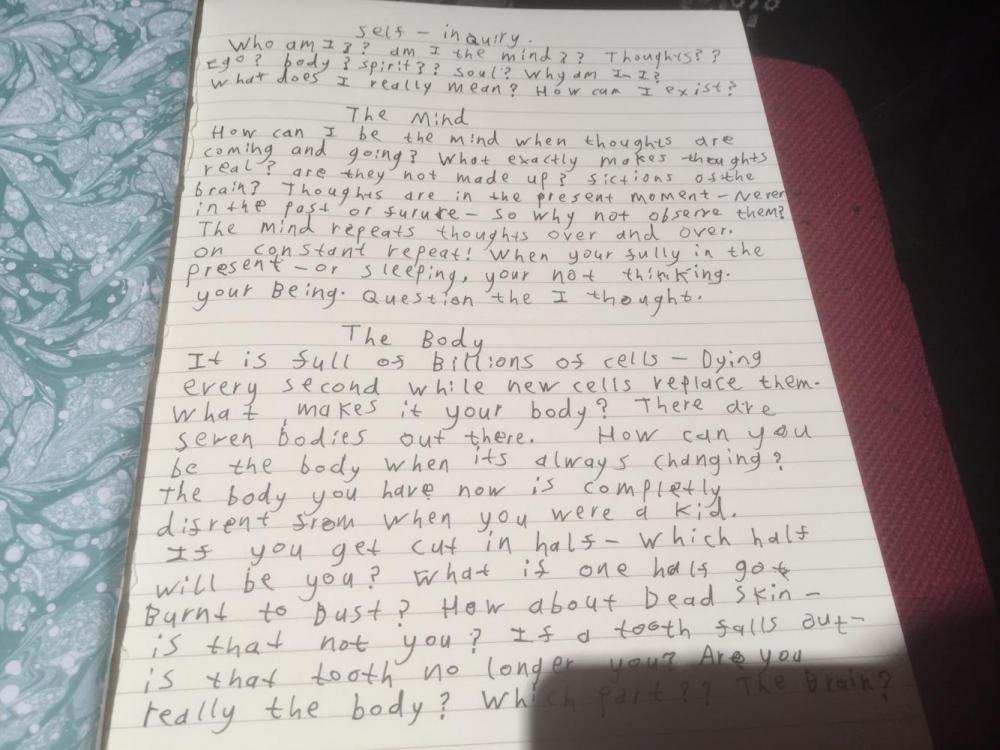 self - inquiry.
Who am I?? am I the mind?? Thoughts??
ego? body? spirit?? soul? Why am I I?
What does I really mean? How can I exist?
The Mind
How can I be the mind when thoughts are
coming and going? What exactly makes thoughts
real? are they not made up? fictions of the
brain? Thoughts are in the present moment - Never
in the past or future - so why not observe them?
The mind repeats thoughts over and over.
on constant repeat! When your fully in the
present - or sleeping, your not thinking.
your Being. Question the I thought.
The Body
It is full of Billions of cells - Dying
every second while new cells replace them.
What makes it your body? There are
seven bodies out there. How can you
be the body when its always changing?
the body you have now is completly
difrent from when you were a kid.
If you get cut in half - which half
will be you? What if one half got
Burnt to Dust? How about Dead skin -
is that not you? If a tooth falls out -
is that tooth no longer you? Are you
really the body? Which part?? The Brain?